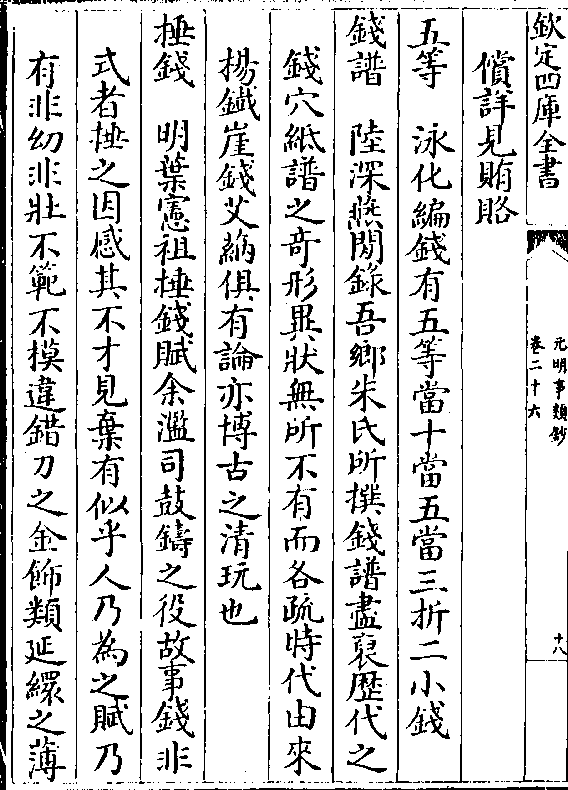 欽定四庫全書
元明事類鈔
卷二十六
十八
償詳見賄賂
五等　泳化編錢有五等當十當五當三折二小錢
錢譜　陸深燕閒錄吾鄉朱氏所撰錢譜盡裒歴代之
錢穴紙譜之竒形異狀無所不有而各疏時代由來
揚鐡崖錢艾衲俱有論亦博古之清玩也
捶錢　明葉憲祖捶錢賦余濫司鼓鑄之役故事錢非
式者捶之因感其不才見棄有似乎人乃為之賦乃
有非幼非壯不範不模違錯刀之金飾類延繯之薄